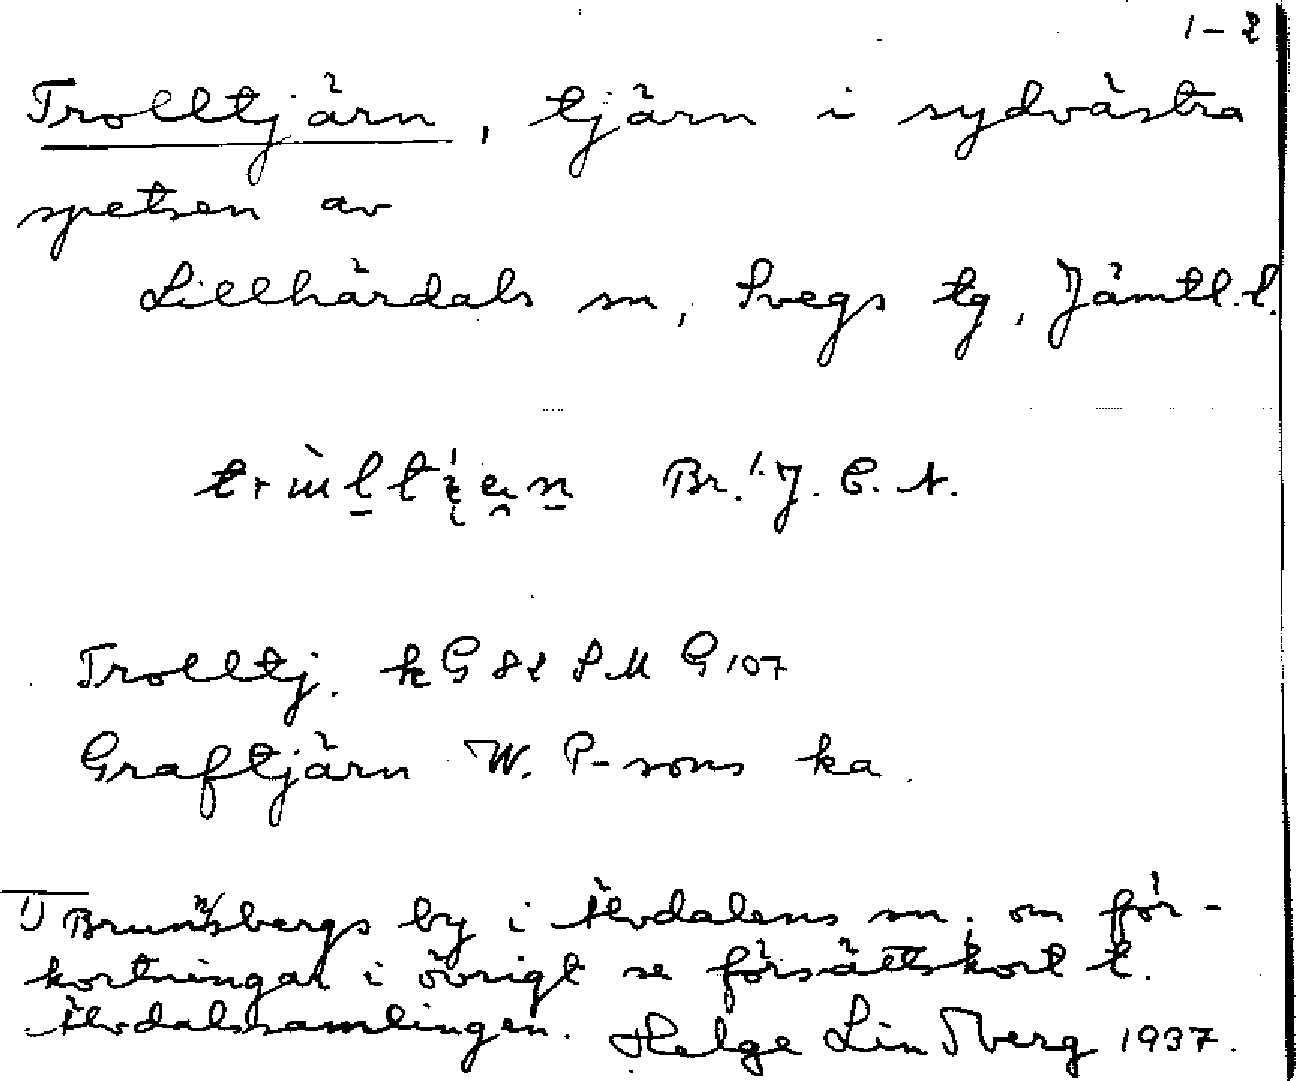 1-2
Trolltjärn, tjärn i sydvästra
spetsen av
Lillhärdals sn, Svegs tg, Jämtl.l.
Br.¹⁾ J. E. A.
Trolltj. kG 82 S M G 107
Graftjärn W. P-sons ka
1) Brunnsbergs by i Älvdalens sn; om för-
kortningar i övrigt se försättskort t.
Älvdalssamlingen. Helge Lindberg 1937.